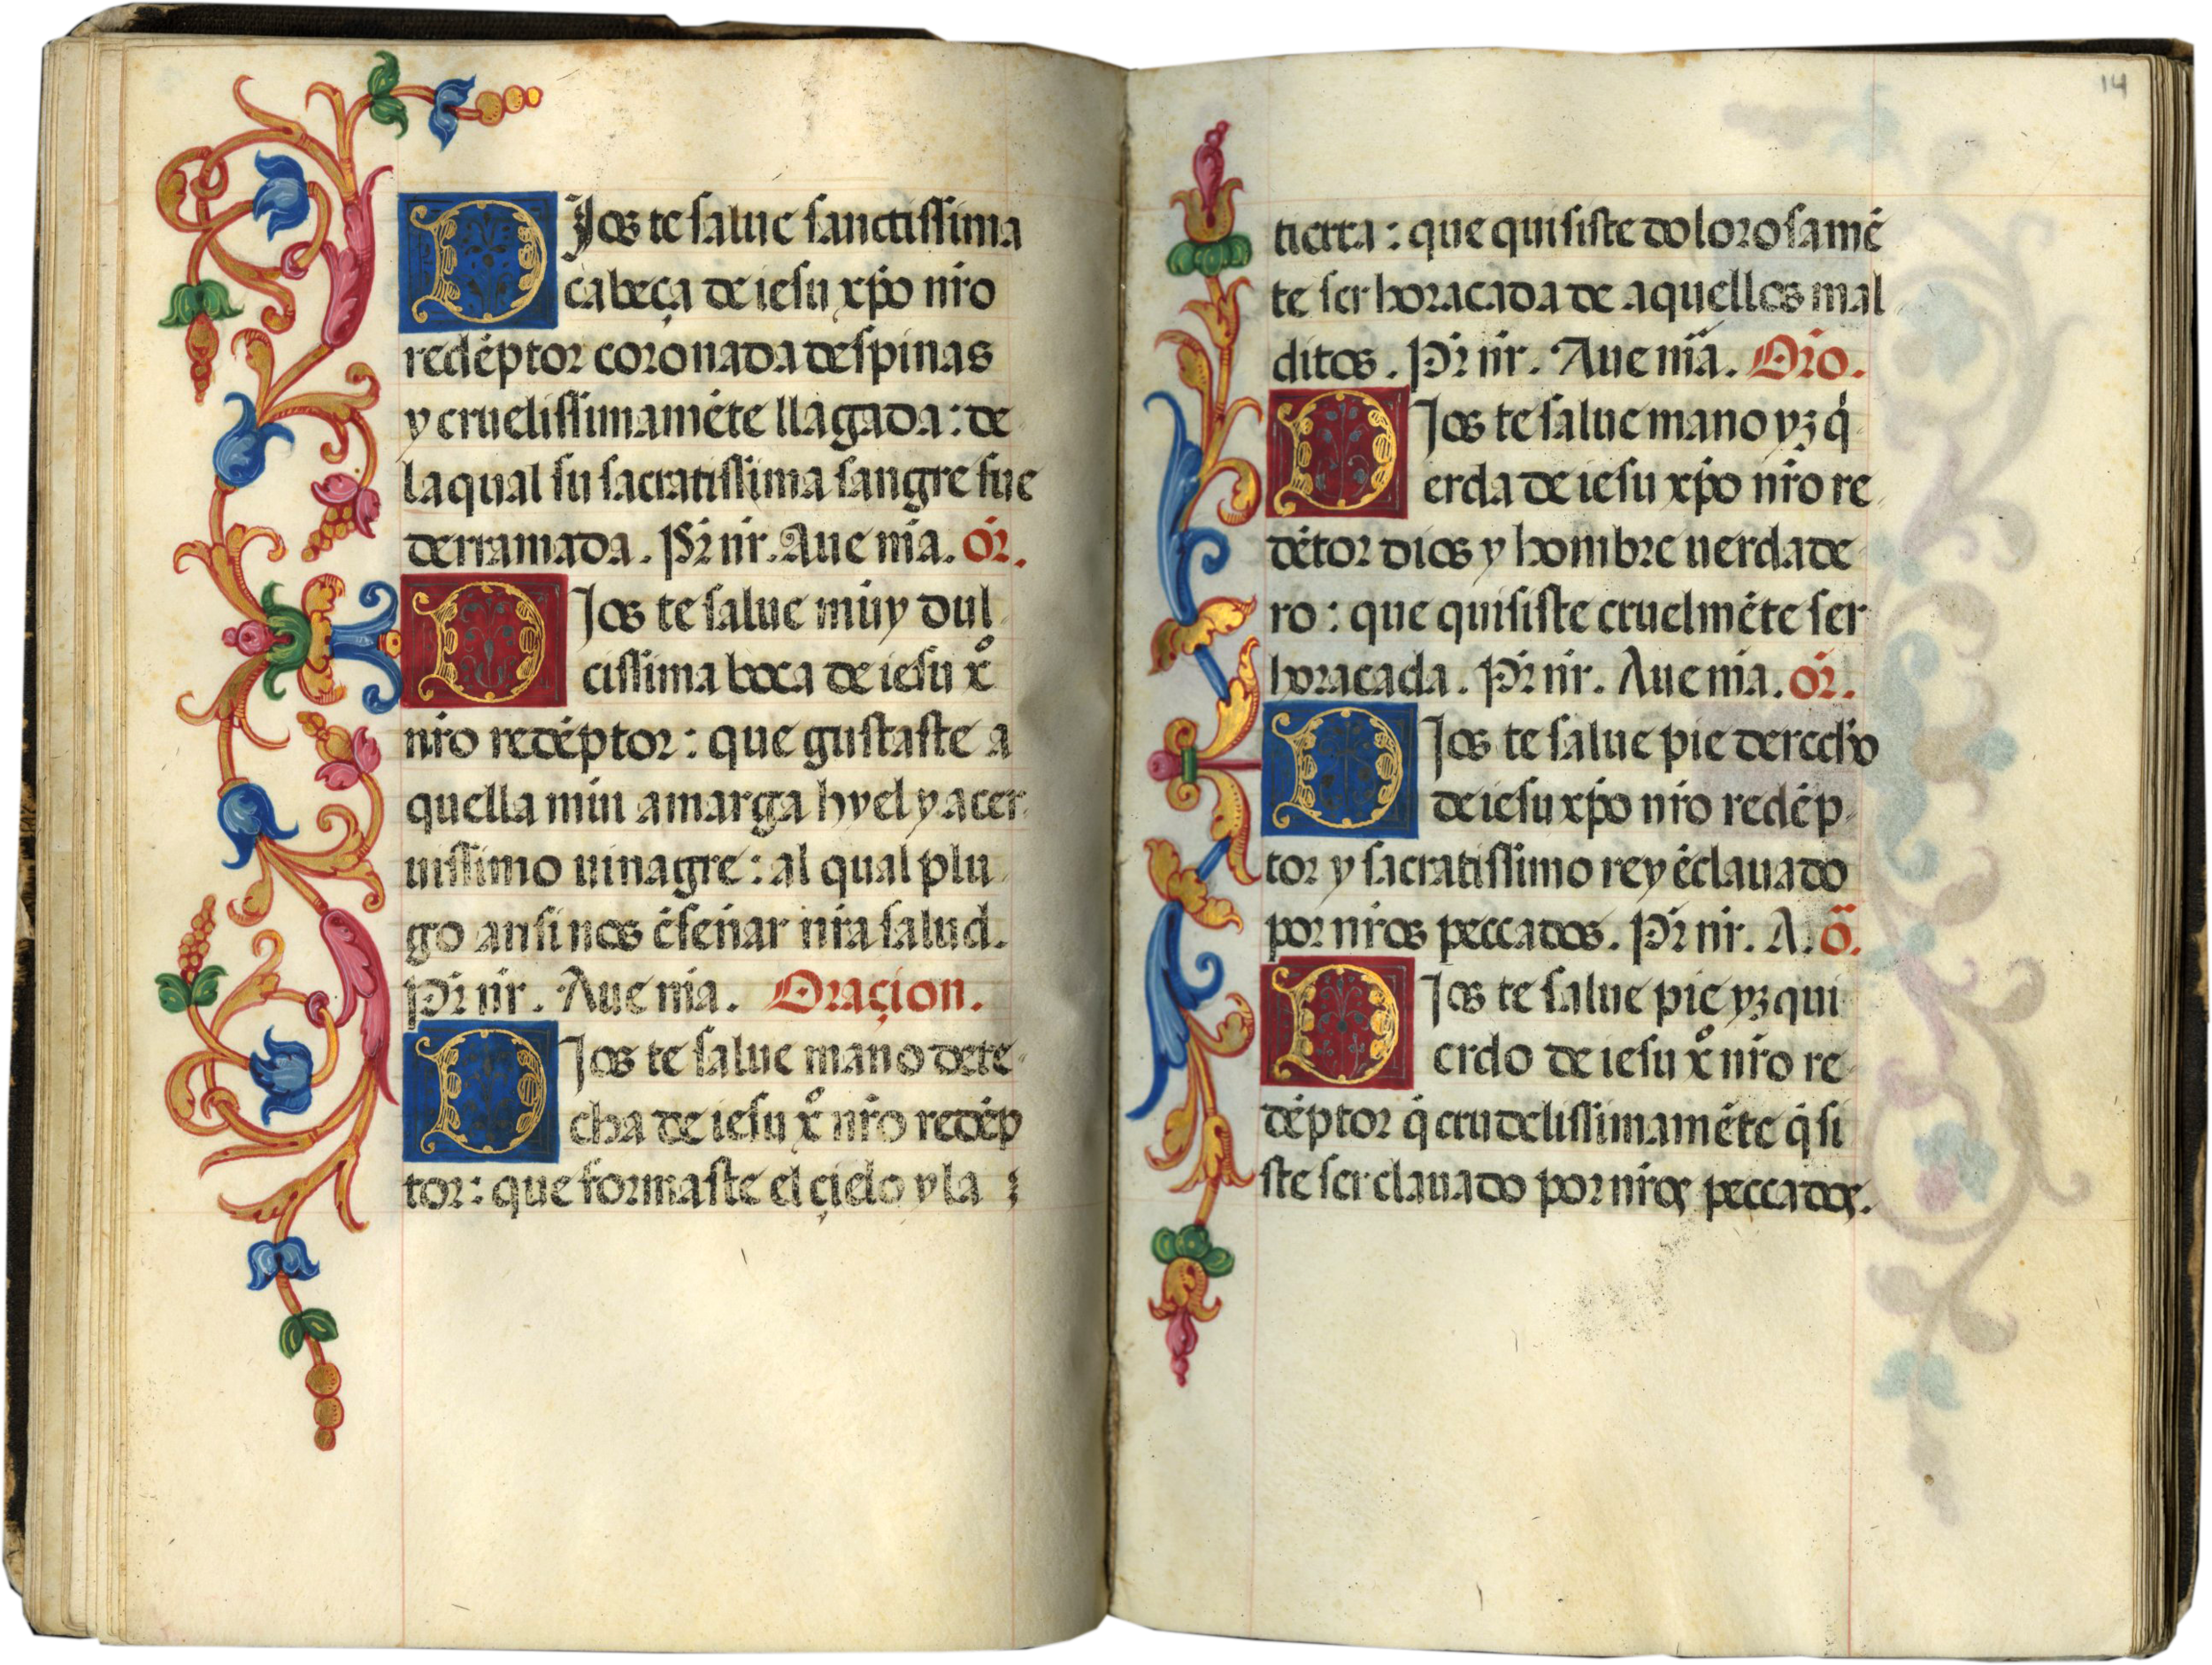 DIos te salue sanctissima
cabeça de iesu xp̄o nr̄o
redēptor coronada despinas
y cruelissimamēte llagada: de
la qual su sacratissima sangre fue
derramada. Pr̄ nr̄. Aue mā. Or̄.
DIos te salue muy dul
cissima boca de iesu xº
nr̄o redēptor: que gustaste a
quella mui amarga hyel y acer
uissimo uinagre: al qual plu
go ansi nos ēseñar nr̄a salud.
Pr̄ nr̄. Aue mā. Oraçion.
DIos te salue mano dere
cha de iesu xº nr̄o redēp
tor: que formaste el çielo y la
14
tierra: que quisiste dolorosamē
te ser horacada de aquellos mal
ditos. Pr̄ nr̄. Aue mā. Orō.
DIos te salue mano yzq̄
erda de iesu xp̄o nr̄o re
dētor dios y hombre uerdade
ro: que quisiste cruelmēte ser
horacada. Pr̄ nr̄. Aue mā. Or̄.
DIos te salue pie derecho
de iesu xp̄o nr̄o redēp
tor y sacratissimo rey ēclauado
por nr̄os peccados. Pr̄ nr̄. A. Ō.
DIos te salue pie yzqui
erdo de iesu xº nr̄o re
dēptor q̄ crudelissimamēte q̄si
ste ser clauado por nr̄os peccados.